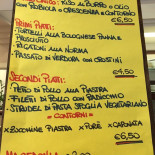 RISO AL BURRO O OLIO
O CRESCENZA + CONTORNO
€6,50
PRIMI PIATTI:
• TORTELLI ALLA BOLOGNESE PANNA E
PROSCIUTTO
• RIGATONI ALLA NORMA
• PASSATO DI VERDURA CON CROSTINI
€4,50
SECONDI PIATTI:
• FILETTO DI POLLO ALLA PIASTRA
• FILETTI DI POLLO CON RADICCHIO
• STRUDEL DI PASTA SFOGLIA VEGETARIANO
+ CONTORNI:
X ZUCCHINE PIASTRA X PURÈ X CAPONATA
€6,50